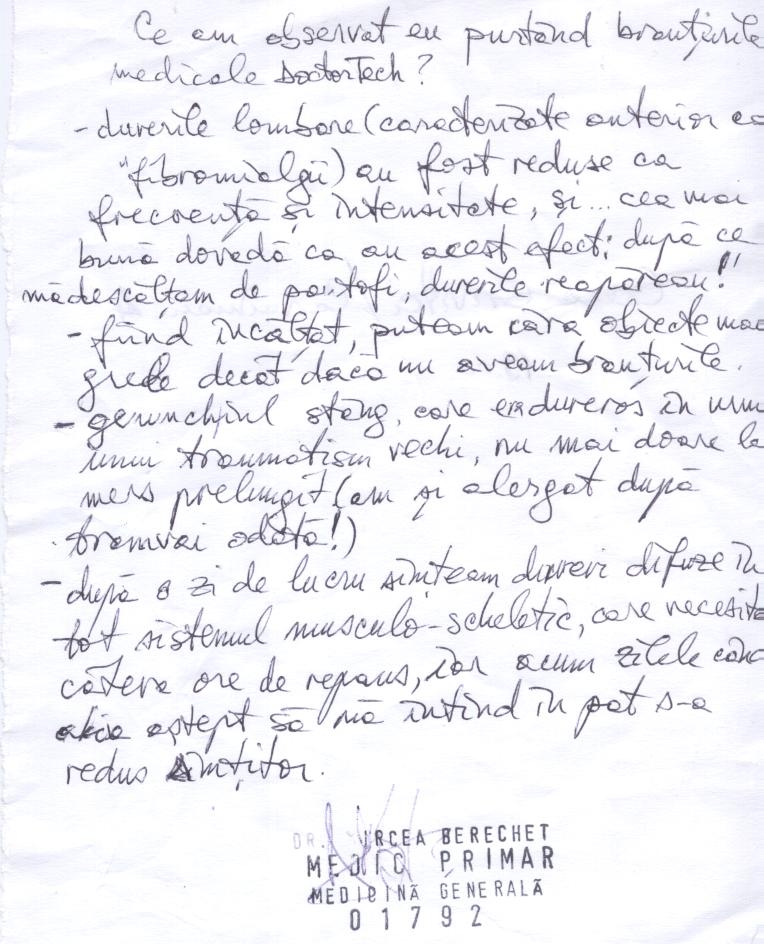 Ce am observat eu purtând branțurile
medicale DoctorTech?
- durerile lombare (caracterizate anterior ca
"fibromialgii) au fost reduse ca
frecvență și intensitate, și... cea mai
bună dovadă ca au acest efect: după ce
mă descălțam de pantofi, durerile reapăreau!"
- fiind încălțat, puteam căra obiecte mai
grele decât dacă nu aveam branțurile.
- genunchiul stâng, care era dureros în urma
unui traumatism vechi, nu mai doare la
mers prelungit (am și alergat după
tramvai odată!)
- după o zi de lucru simțeam dureri difuze în
tot sistemul musculo-scheletic, care necesita
câteva ore de repaus, iar acum zilele când
abia aștept să mă întind în pat s-a
redus simțitor.
DR. MIRCEA BERECHET
MEDIC PRIMAR
MEDICINĂ GENERALĂ
01792